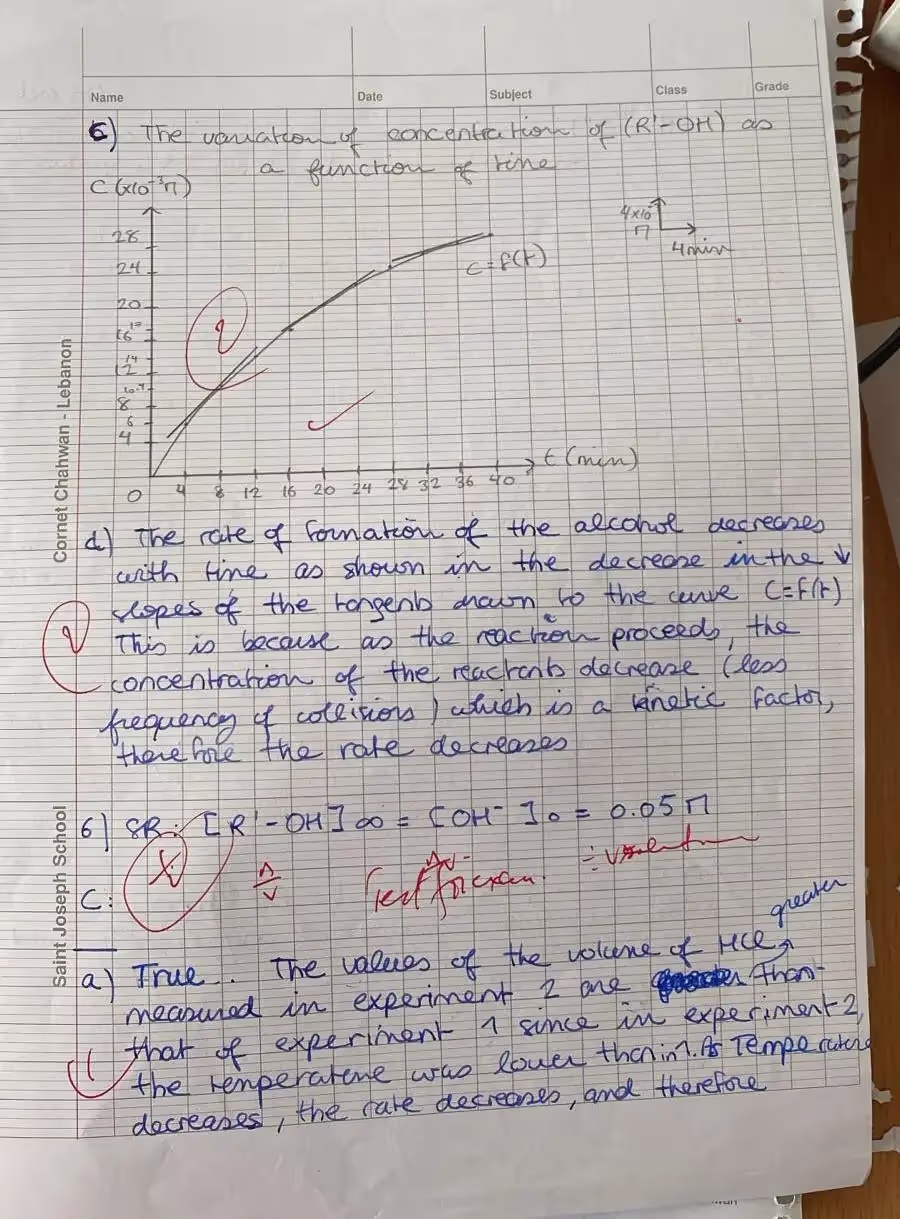 Name Date Subject Class Grade
c) The variation of concentration of (R'-OH) as
a function of time
C (x10⁻³M)
4x10⁻³
M
4min
28
24
20
16
14
12
10.7
8
6
4
C = f(t)
t (min)
0 4 8 12 16 20 24 28 32 36 40
Cornet Chahwan - Lebanon
d) The rate of formation of the alcohol decreases
with time as shown in the decrease in the ↓
slopes of the tangents drawn to the curve C=f(t)
This is because as the reaction proceeds, the
concentration of the reactants decrease (less
frequency of collisions) which is a kinetic factor,
therefore the rate decreases
Saint Joseph School
6) SR: [R'-OH]∞ = [OH⁻]₀ = 0.05 M
C:
a) True. The values of the volume of HCl greater
measured in experiment 2 are than
that of experiment 1 since in experiment 2,
the temperature was lower than in 1. As Temperature
decreases, the rate decreases, and therefore